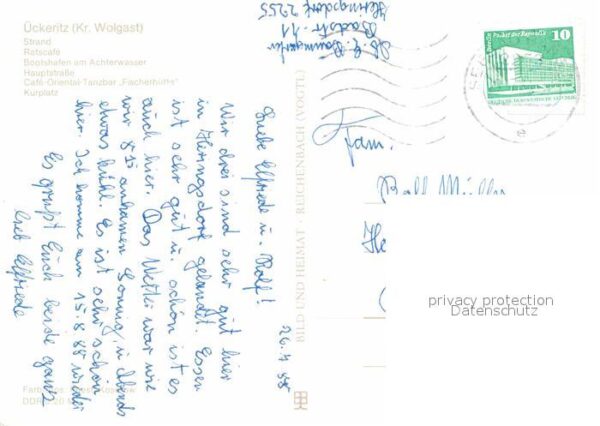 Ückeritz (Kr. Wolgast)
Strand
Ratscafe
Bootshafen am Achterwasser
Hauptstraße
Café-Oriental-Tanzbar „Fischerhütte"
Kurplatz
Heringsdorf 2255
Badstr. 11
10
Palast der Republik
BILD UND HEIMAT · REICHENBACH (VOGTL)
Fam.
Rolf Müller
26.7.88
Liebe Elfriede u. Rolf!
Wir drei sind sehr gut hier
in Heringsdorf gelandet. Essen
ist sehr gut u. schön ist es
auch hier. Das Wetter war wie
wir ankamen sonnig, u. Abends
etwas kühl. Es ist sehr schön
hier. Ich komme am 15.8.88 wieder
Es grüßt Euch beide ganz
lieb Elfriede
DDR
privacy protection
Datenschutz